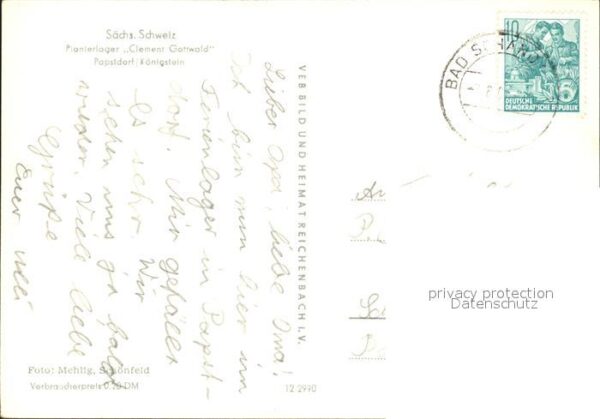 Sächs. Schweiz
Pionierlager „Clement Gottwald"
Papstdorf/Königstein
Lieber Opa, liebe Oma!
Ich bin nun hier im
Ferienlager in Papst-
dorf. Mir gefällt
es sehr. Wir
sehen uns ja bald
wieder. Viele liebe
Grüße
Euer
Foto: Mehlig, Schönfeld
Verbraucherpreis 0,20 DM
VEB BILD UND HEIMAT REICHENBACH I. V.
12 2990
BAD SCHAND
10
DEUTSCHE
DEMOKRATISCHE REPUBLIK
privacy protection
Datenschutz